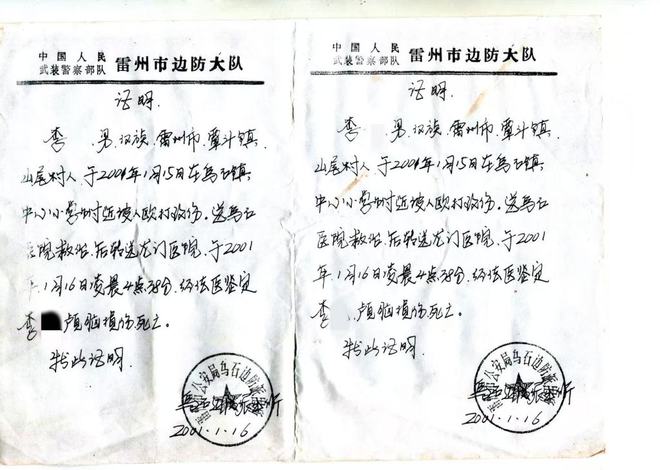 中国人民
武装警察部队 雷州市边防大队
证明.
李 男.汉族.雷州市.覃斗镇.
山尾村人.于2001年1月15日在乌石镇
中心小学附近被人殴打致伤.送乌石
医院救治.后转送龙门医院.于2001
年.1月16日凌晨4点38分.经法医鉴定
李 颅脑损伤死亡。
特此证明.
公安局乌石边防派
2001.1.16
中国人民
武装警察部队 雷州市边防大队
证明.
李 男.汉族.雷州市.覃斗镇.
山尾村人.于2001年1月15日在乌石镇.
中心小学附近被人殴打致伤.送乌石
医院救治.后转送龙门医院.于2001
年.1月16日凌晨4点38分.经法医鉴定
李 颅脑损伤死亡。
特此证明.
公安局乌石边防派
2001.1.16